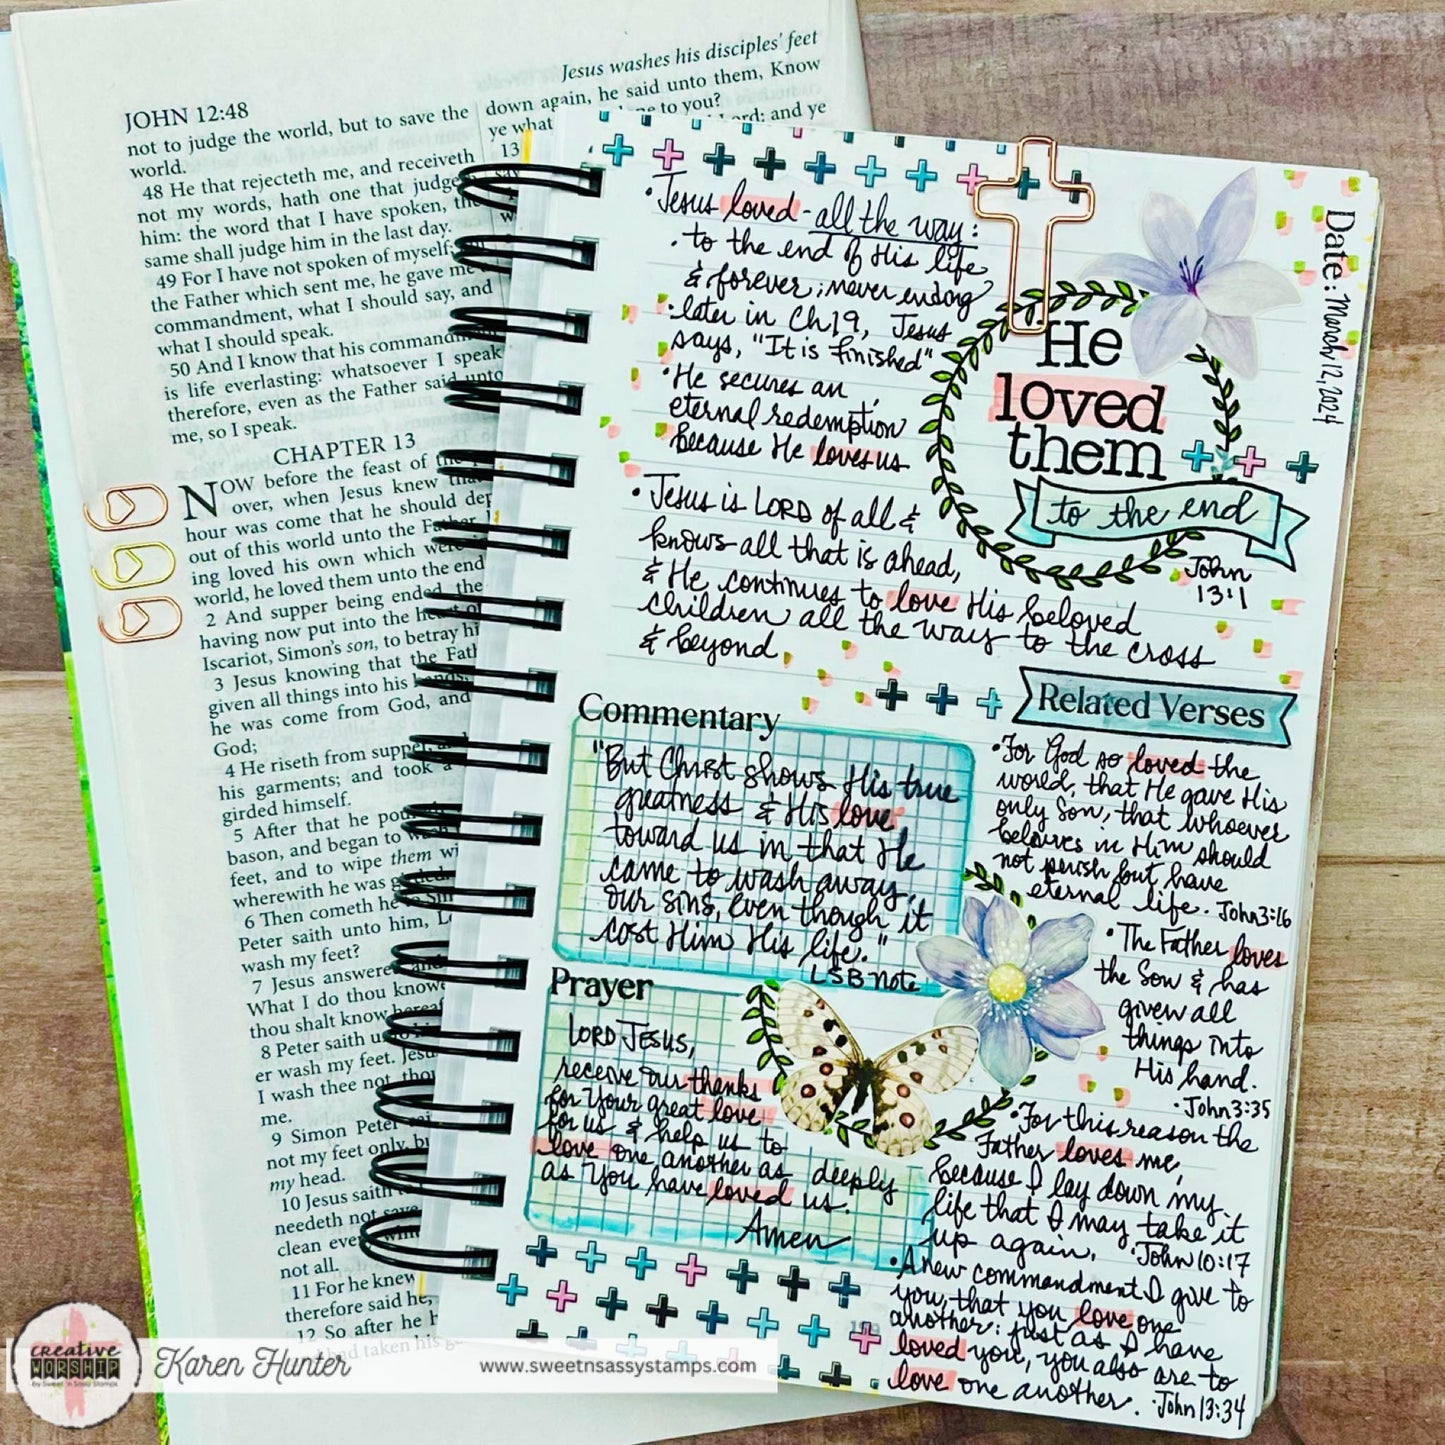 JOHN 12:48
not to judge the world, but to save the
world.
48 He that rejecteth me, and receiveth
not my words, hath one that judge
him: the word that I have spoken, the
same shall judge him in the last day.
49 For I have not spoken of myself;
the Father which sent me, he gave me
commandment, what I should say, and
what I should speak.
50 And I know that his command
is life everlasting: whatsoever I speak
therefore, even as the Father said unto
me, so I speak.
CHAPTER 13
NOW before the feast of the
over, when Jesus knew that
hour was come that he should dep
out of this world unto the Father
ing loved his own which were
world, he loved them unto the end
2 And supper being ended, the
having now put into the heart of
Iscariot, Simon's son, to betray hi
3 Jesus knowing that the Fath
given all things into his hands,
he was come from God, and
God;
4 He riseth from supper,
his garments; and took a
girded himself.
5 After that he pou
bason, and began to wash
feet, and to wipe them wi
wherewith he was girded.
6 Then cometh he
Peter saith unto him, Lo
wash my feet?
7 Jesus answered and
What I do thou know
thou shalt know hereaf
8 Peter saith
er wash my feet. Jesu
I wash thee not, thou
me.
9 Simon Peter sai
not my feet only, bu
my head.
10 Jesus saith
needeth not save
clean eve
not all.
11 For he knew
therefore said he,
12 So after he h
had taken his g
Jesus washes his disciples' feet
down again, he said unto them, Know
ye what to you?
and ye
13
• Jesus loved - all the way:
• to the end of His life
& forever; never ending
• later in Ch19, Jesus
says, "It is finished"
• He secures an
eternal redemption
because He loves us
• Jesus is LORD of all &
knows all that is ahead,
& He continues to love His beloved
children all the way to the cross
& beyond.
Date: March 12, 2024
He
loved
them
to the end
John
13:1
Commentary
"But Christ shows His true
greatness & His love
toward us in that He
came to wash away
our sins, even though it
cost Him His life."
LSB note
Prayer
LORD JESUS,
receive our thanks
for Your great love
for us & help us to
love one another as deeply
as You have loved us.
Amen
Related Verses
• For God so loved the
world, that He gave His
only Son, that whoever
believes in Him should
not perish but have
eternal life. John 3:16
• The Father loves
the Son & has
given all
things into
His hand.
• John 3:35
• For this reason the
Father loves me,
because I lay down my
life that I may take it
up again. • John 10:17
• A new commandment I give to
you, that you love one
another: just as I have
loved you, you also are to
love one another. • John 13:34
199
creative
WORSHIP
by Sweet 'n Sassy Stamps
Karen Hunter
www.sweetnsassystamps.com